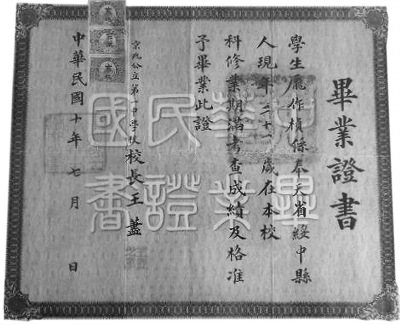 畢業證書
學生龐作楨係奉天省綏中縣
人現年二十 歲在本校
科修業期滿考查成績及格准
予畢業此證
京兆公立第一中學校校長王蓋
中華民國十年七月 日
中華民國
畢業證書